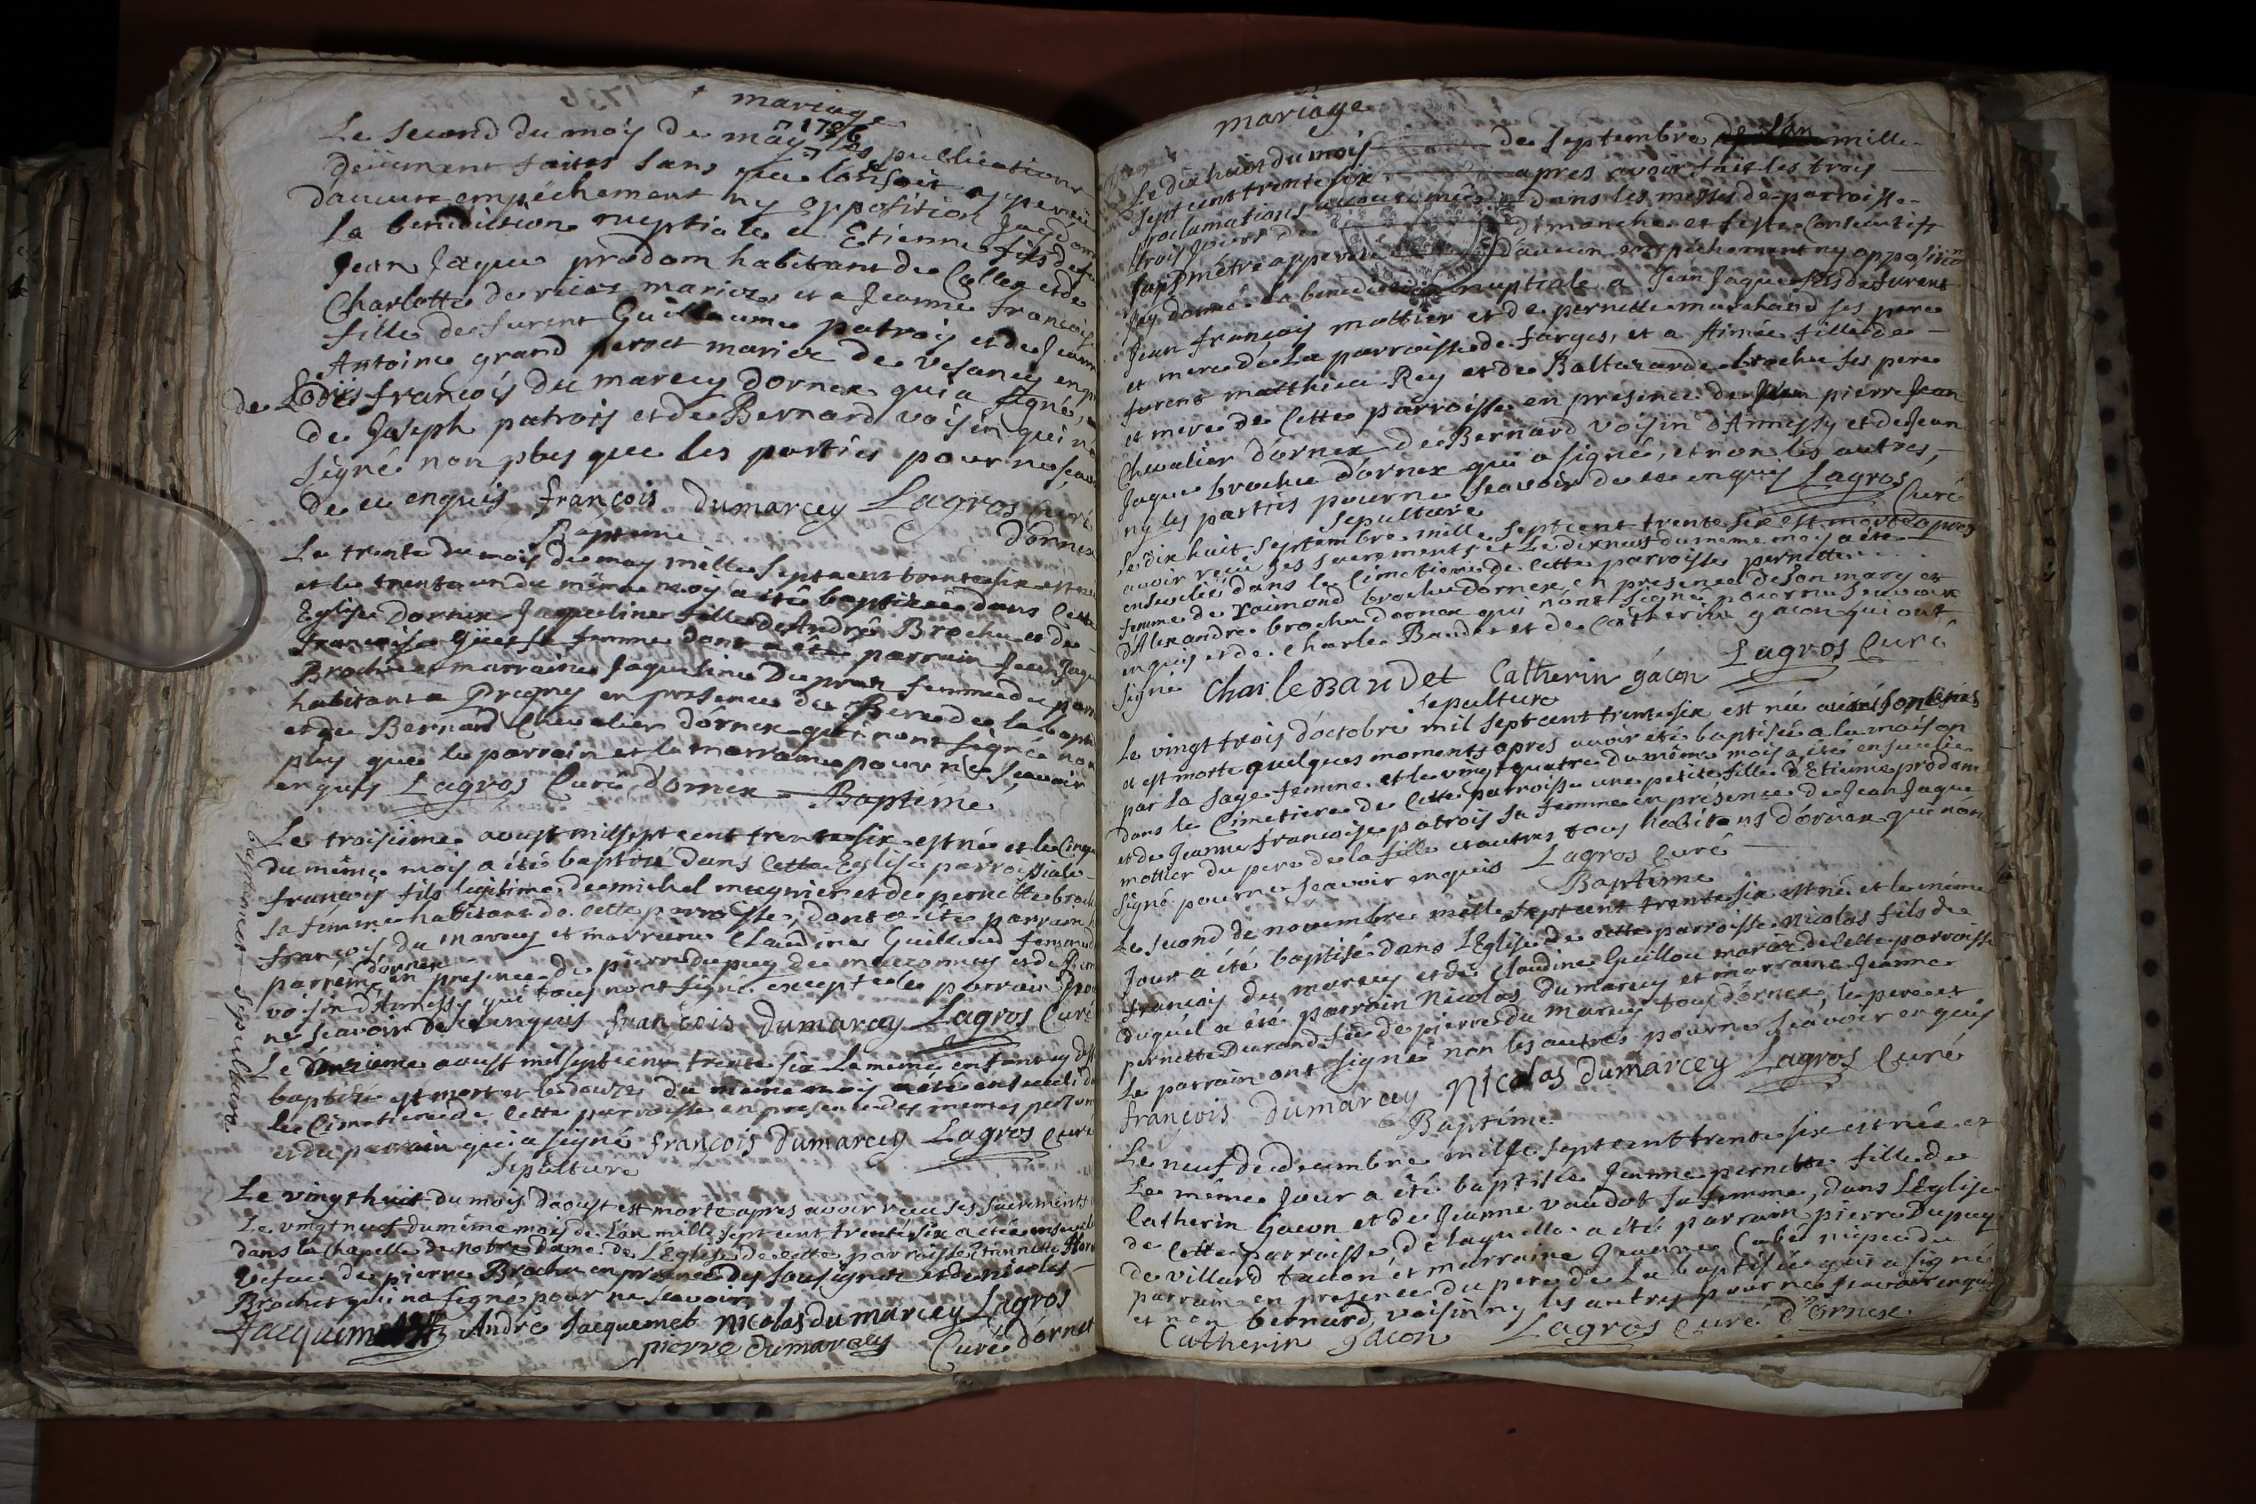 mariage
Le second du moÿ de may 1736 les publications
deüement faites sans que lon soit apperceu
daucun empéchement ny opposition Jay donné
la benediction nuptiale a Etienne fils de feu
Jean Jaque prodom habitant de Collex et de
Charlotte de mariez et a Jeanne françoise
fille de furent Guillaume patroÿ et de Jeanne
Antoine grand perret mariez de Vesancy en
de Loüis françoÿ du marcey dornex qui a signé,
de Joseph patroÿ et de Bernard voisin qui n'
signé non plus que les parties pour ne sçavoir
de ce enquis françois dumarcey Lagros curé
dornex
Baptéme
Le trente du mois de may mille sept cent trente six est née
et le trente un du méme moÿ a été baptizée dans Cette
Eglise Dornex Jaqueline fille d'André Brochu et de
françoise sa femme dont a été parrain Jean Jaque
Brochu et marraine Jaqueline Duprez femme du parrain
habitant a Pregny en presence du Pere de la bapti
et de Bernard Chevalier dornex qui n'ont signé non
plus que le parrain et la marraine pour ne sçavoir
enquis Lagros Curé d'ornex
Baptéme
Le troisieme aoust mil sept cent trente six est né et le Cinq
du méme mois a été baptizé dans Cette Eglise parroissiale
françoÿ fils legitime de michel mugnier et de pernette brochu
sa femme habitant de cette parroisse, dont a été parrain
françoÿ du marcey et marraine Claudine Guilloud femme du
parrain dornex en presence de pierre dupuy de et de Bern
voisin d'Annessy qui tous n'ont signé excepté le parrain pour
ne sçavoir de ce enquis françois dumarcey Lagros Curé
baptéme et sepulture
Le aoust mil sept cent trente six Le méme enfant cy dess
baptizé est mort et le douze du méme moÿ a été enseveli da
le Cimetiere de Cette parroisse en presence des mémes personnes
et du parrain qui a signé françois dumarcey Lagros Curé
sepulture
Le vingt huit du mois d'aoust est morte apres avoir receu ses sacrements
Le vingt neuf du méme mois de l'an mille sept cent trente six a été ensevelie
dans la chapelle de notre dame de L'Eglise de cette parroisse
vefue de pierre Brochu en presence des sousignez et de nicolas
Brochet qui n'a signé pour ne sçavoir
Jacquemet André Jacquemet Nicolas du marcey Lagros
pierre dumarcey Curé d'ornex
mariage
Le dix huit du mois de septembre mille
sept cent trente six apres avoir fait les trois
proclamations accoutumées dans les messes de parroisse
trois jours de dimanche et feste Consecutifs
sans m'étre apperceu d'aucun empéchement ny opposition
Jay donné la benediction nuptiale a Jean Jaque fils de furent
Jean françoÿ mottier et de pernette marchand ses pere
et mere de La parroisse de farges, et a Aimée fille de
furent matthieu Rey et de Baltazarde brochu ses pere
et mere de Cette parroisse en presence de pierre Jean
Chevalier d'ornex de Bernard voisin d'Annissy et de Jean
Jaque brochu d'ornex qui a signé, et non les autres,
ny les parties pour ne sçavoir de ce enquis Lagros
Curé
sepulture
Le dix huit septembre mille sept cent trente six est morte apres
avoir receu ses sacrements et Le dix neuf du meme mois a été
ensevelie dans le Cimetiere de Cette parroisse pernette
femme de raimond brochu dornex, en presence de son mary et
d'Alexandre brochu dornex qui n'ont signé pour ne sçavoir
enquis et de Charle Baudet et de Catherin gacon qui ont
signé Charle BauDet Catherin gacon Lagros Curé
sepulture
Le vingt trois d'octobre mil sept cent trente six est née
et est morte quelques moments apres avoir été baptisée a la maison
par La sage femme et le vingt quatre du méme mois a été ensevelie
dans le Cimetiere de Cette parroisse une petite fille d'Etienne prodom
et de Jeanne francoise patrois sa femme en présence de Jean Jaque
mottier du pere de la fille et autres tous habitans d'ornex qui n'ont
signé pour ne sçavoir enquis Lagros Curé
Baptéme
Le second de novembre mille sept cent trente six est né et le méme
Jour a été baptisé dans L'Eglise de cette parroisse Nicolas fils de
françois du marcey et de Claudine Guillou mariez de Cette parroisse
duquel a été parrain Nicolas du marcey et marraine Jeanne
pernette Durand feu de pierre du marcey tous d'ornex, le pere et
Le parrain ont signé non les autres pour ne sçavoir enquis
françois dumarcey Nicolas dumarcey Lagros Curé
Baptéme
Le neuf de decembre mille sept cent trente six est née et
Le méme Jour a été baptisée Jeanne pernette fille de
Catherin Gacon et de Jeanne vaudot sa femme, dans L'Eglise
de Cette parroisse, de laquelle a été parrain pierre Dupuy
de villard tacon et marraine Jeanne
parrain en presence du pere de La baptisée qui a signé
et non bernard voisin ny les autres pour ne sçavoir enquis
Catherin gacon Lagros Curé d'Ornex